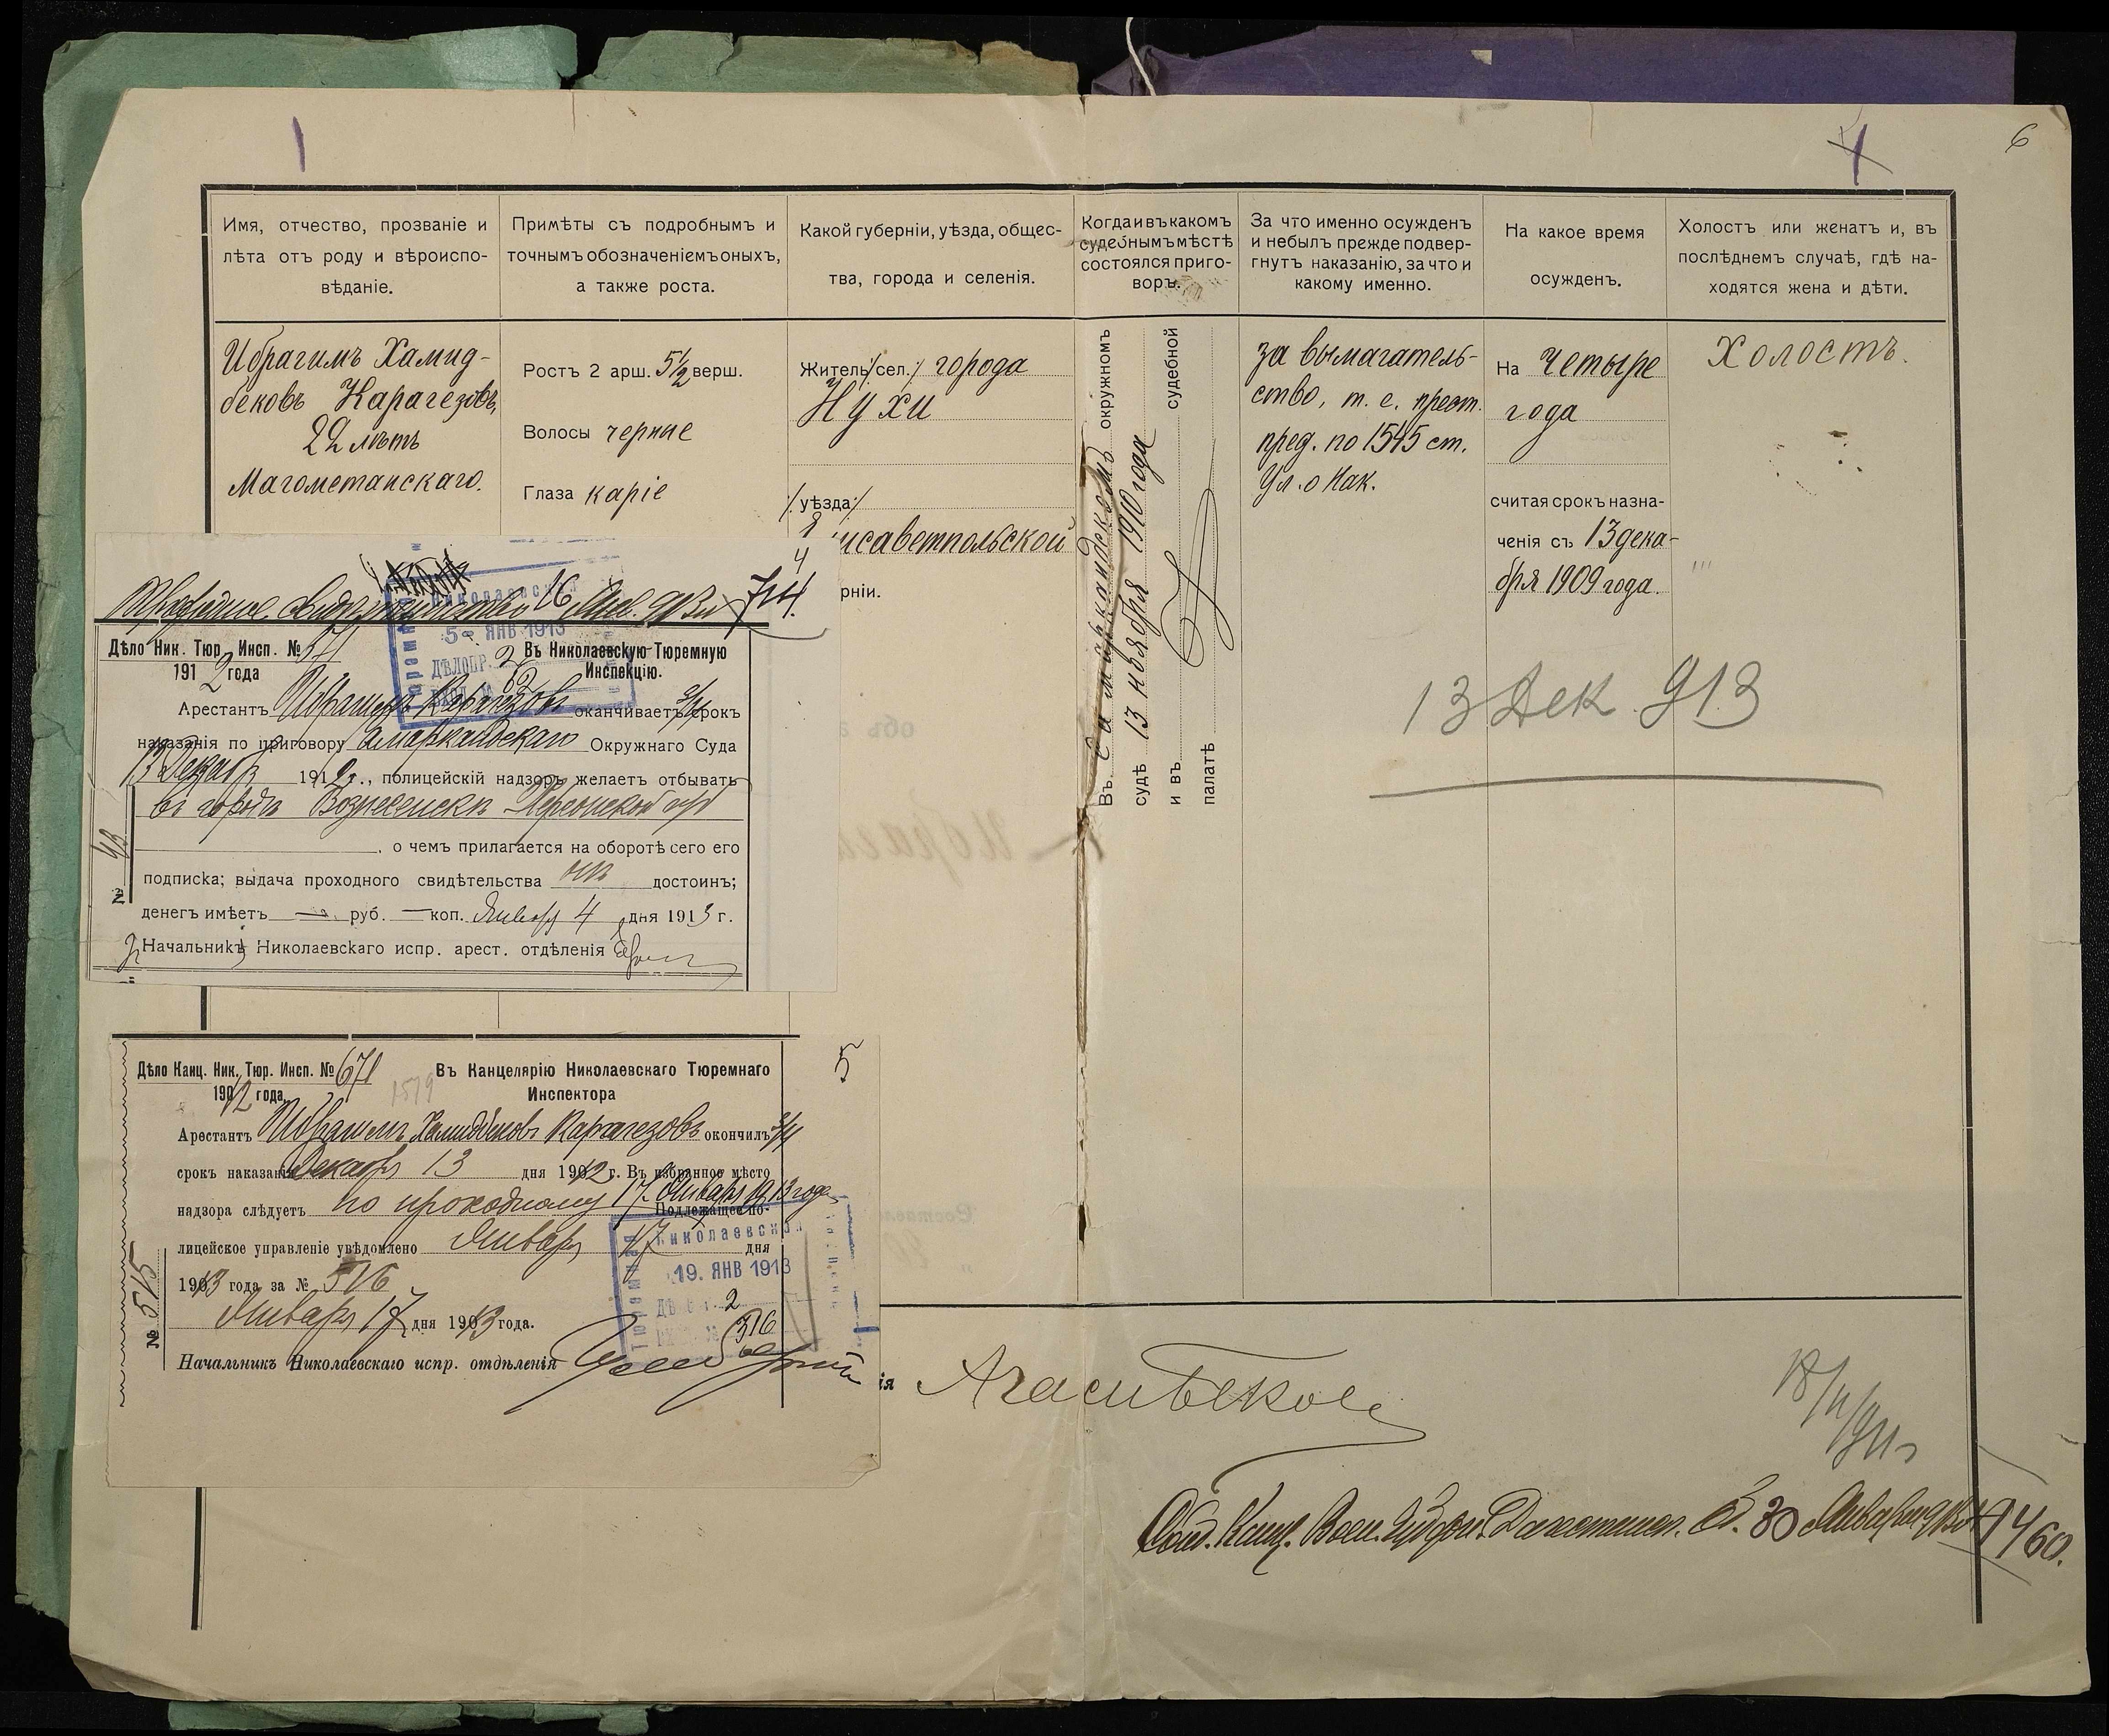 6
Имя, отчество, прозваніе и
лѣта отъ роду и вѣроиспо-
вѣданіе.
Примѣты съ подробнымъ и
точнымъ обозначеніемъ оныхъ,
а также роста.
Какой губерніи, уѣзда, общес-
тва, города и селенія.
Когда и въ какомъ
судебномъ мѣстѣ
состоялся приго-
воръ.
За что именно осужденъ
и небылъ прежде подвер-
гнутъ наказанію, за что и
какому именно.
На какое время
осужденъ.
Холостъ или женатъ и, въ
послѣднемъ случаѣ, гдѣ на-
ходятся жена и дѣти.
Ибрагимъ Хамид-
бековъ Карагезовъ,
22 лѣтъ
Магометанскаго.
Ростъ 2 арш. 5½ верш.
Волосы черные
Глаза каріе
Житель /сел./ города
Нухи
/уѣзда/
Елисаветпольской
рніи.
Въ Самаркандскомъ окружномъ
судѣ 13 ноября 1910 года
и въ судебной
палатѣ
за вымагатель-
ство, т. е. прест.
пред. по 1545 ст.
Ул. о Нак.
На четыре
года
считая срокъ назна-
ченія съ 13 дека-
бря 1909 года.
Холостъ.
13 Дек 913
4
Проходное свидѣтельство 16 913 714.
Дѣло Ник. Тюр. Инсп. №
1912 года
Въ Николаевскую Тюремную
Инспекцію.
Николаевская
5 ЯНВ 1913
ДѢЛОПР. 2
Арестантъ Ибрагимъ Карагезовъ оканчиваетъ срокъ
наказанія по приговору Самаркандскаго Окружнаго Суда
13 Декабря 1912 г., полицейскій надзоръ желаетъ отбывать
въ городѣ Вознесенскѣ Херсонской губ
, о чемъ прилагается на оборотѣ сего его
подписка; выдача проходного свидѣтельства достоинъ;
денегъ имѣетъ — руб. — коп. Января 4 дня 1913 г.
Начальникъ Николаевскаго испр. арест. отдѣленія
№
5
Дѣло Канц. Ник. Тюр. Инсп. № 671
1912 года
1579
Въ Канцелярію Николаевскаго Тюремнаго
Инспектора
Арестантъ Ибрагимъ Хамидбековъ Карагезовъ окончилъ
срокъ наказанія Декабря 13 дня 1912 г. Въ избранное мѣсто
надзора слѣдуетъ по проходному 17 Января 1913 года Подлежащее по-
лицейское управленіе увѣдомлено Января 17 дня
1913 года за № 516
Января 17 дня 1913 года.
Начальникъ Николаевскаго испр. отдѣленія
№ 515
Николаевская
19. ЯНВ 1913
2
316
ія Агасибеков
18/11/911
Канц. Воен. Губерн. Дагестанск. О. 30 Января 913 № 1460.